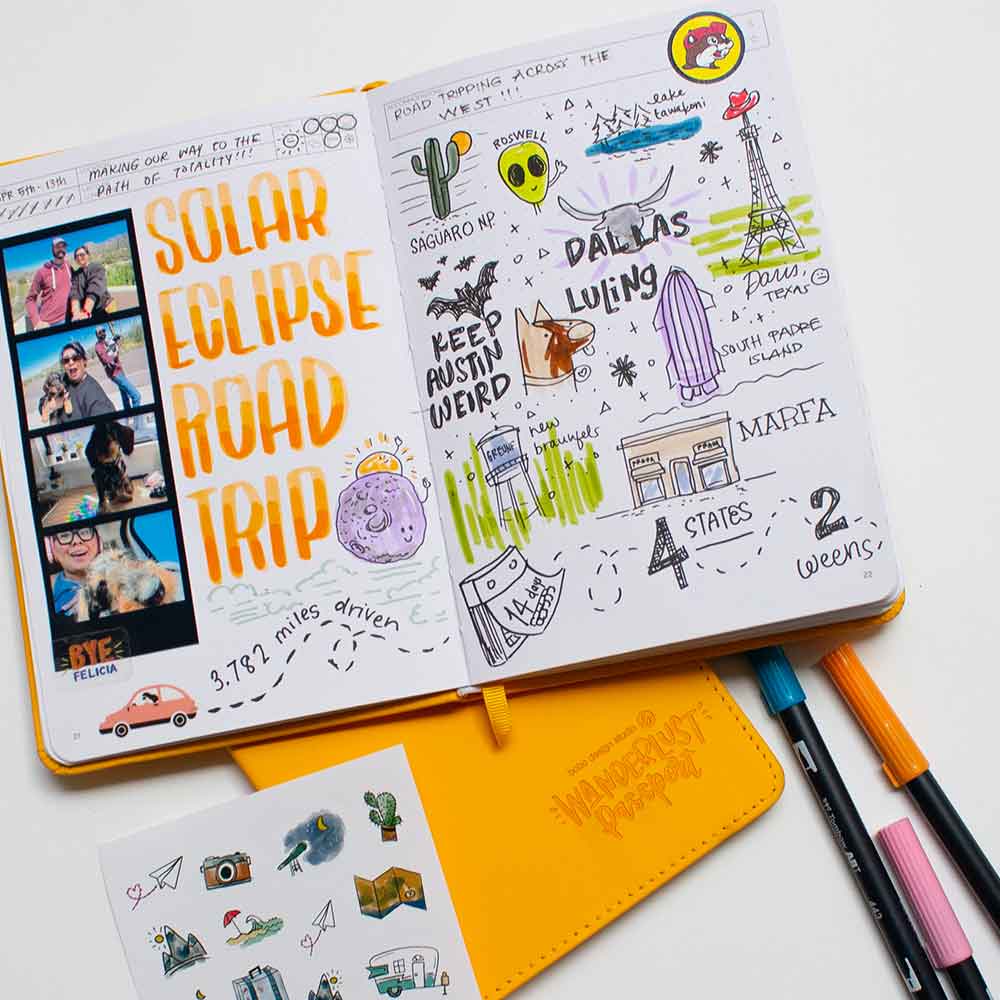 APR 5th - 13th
MAKING OUR WAY TO THE
PATH OF TOTALITY!!!
SOLAR
ECLIPSE
ROAD
TRIP
3,782 miles driven
BYE
FELICIA
21
ROAD TRIPPING ACROSS THE
WEST !!!
SAGUARO NP.
ROSWELL
lake
tawakoni
DALLAS
LULING
Paris,
TEXAS
KEEP
AUSTIN
WEIRD
SOUTH PADRE
ISLAND
GRUENE
new
braunfels
PRADA
PRADA
MARFA
14 days
4 STATES
2
weeks,
22
WANDERLUST
Passport
Tombow ABT